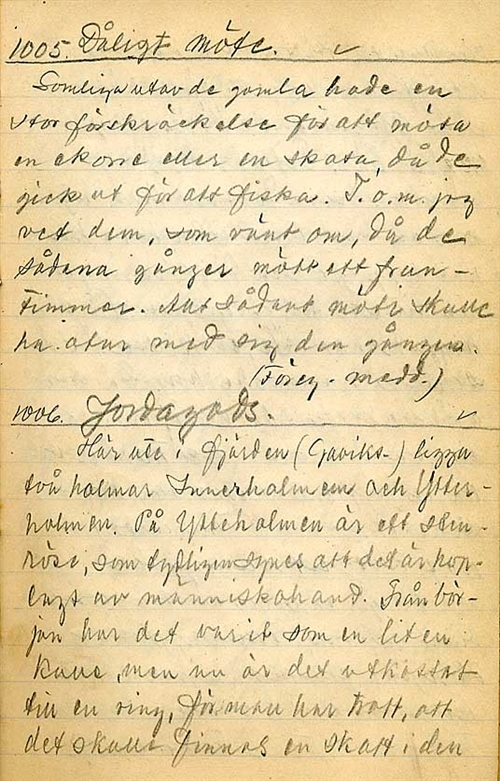 1005. Dåligt möte.
Somliga utav de gamla hade en
stor förskräckelse för att möta
en ekorre eller en skata, då de
gick ut för att fiska. T.o.m. jag
vet dem, som vänt om, då de
sådana gånger mött ett frun-
timmer. Att sådant möte skulle
ha otur med sig den gången.
(Föreg. medd.)
1006. Jordagods.
Här ute i fjärden (Gaviks-) ligga
två holmar Innerholmen och Ytter-
holmen. På Ytteholmen är ett sten-
röse, som tydligen synes att det är hop-
lagt av människohand. Från bör-
jan har det varit som en liten
kulle, men nu är det utkastat
till en ring, för man har trott, att
det skulle finnas en skatt i den